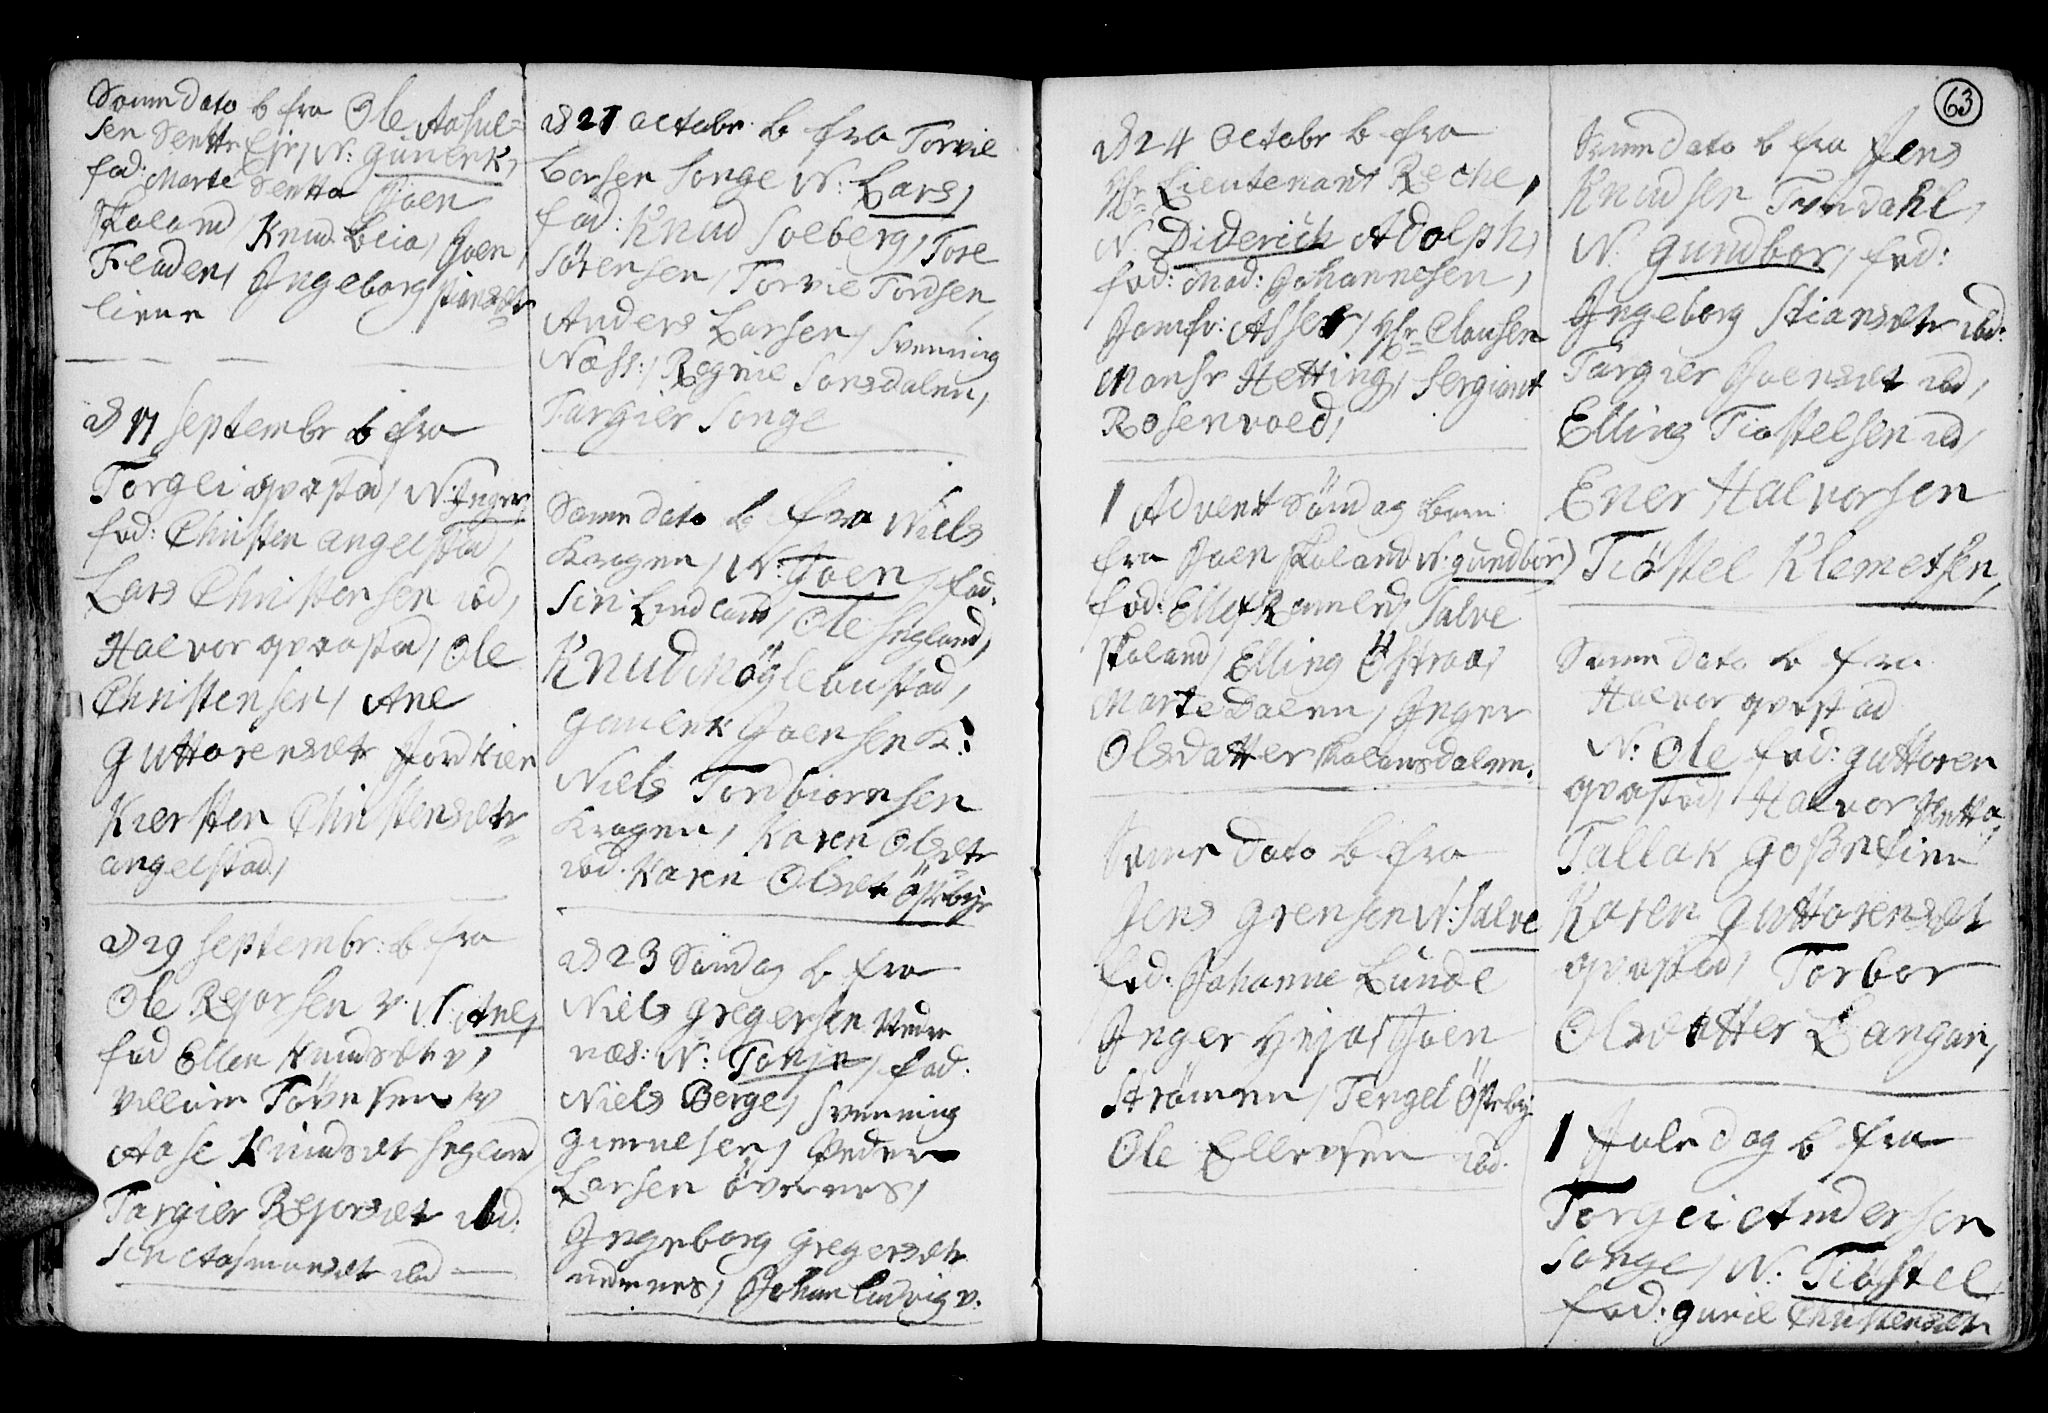 Samme dato b fra Ole Aasul=
sen Sentte Eje, N: Gunerk,
fad: Marte Sentta Joen
Skaland, Knud Leia, Joen
Fenden, Ingeborg stiansdtr
Liene
d 17 Septembr b fra
Torgei qvastad, N: Inger,
fad: Christen angelstad,
Lars Christensen ibd,
Halvor qvastad, Ole
Christensen, Ane
Guttorensdtr Jordkier
Kiersten Christensdtr
angelstad,
d 29 Septembr: b fra
Ole Rejorsen v. N: Ane,
fad Ellen Knudsdtr v,
Villum Tövesen v
Aase Knudsdt Segland
Targier Rejorsdt ibd.
Siri Aasmundsdt ibd
d 21 octobr b fra Torvie
Larsen Songe N: Lars,
fad: Knud Solberg, Tore
Sörensen, Torvie Tordsen
Anders Larsen, Svenning
Næss:, Regnie Sonsdalen,
Targier Songe
Samme dato b fra Niels
Kragen, N: Joen, fad:
Siri Lindland, Ole Segland,
Knud Möglebustad,
Gunerk Joensen K:
Niels Tordbiornsen
Kragen, Karen Olsdtr
ibd. Karen Olsdt Östebye
d 23 Söndag b fra
Niels Gregersen Nede
næs: N: Tonje, fad:
Niels Berge, Svenning
Giernelsen, Peder
Larsen Övernes,
Ingeborg Gregersdtr
nedenes, Johan Ludvig v.
63
d 24 Octobr b fra
Hr Lieutenant Reche,
N. Diderich Adolph,
fad: Mad: Johannesen,
Jomfr: Asser, Hr Clausen
Monsr Hetting, Sergiant
Rosenvold,
1 Advent Söndag barn:
fra Joen Skaland N: gundbor)
fad: Ellef Ramled, Salve
Skaland, Elling Östraa,
Marte Dalen, Inger
Olsdatter Skalansdalen.
Samme Dato b fra
Jens Grensen N: Salve
fad: Johanne Lunde
Inger Hejas Joen
Strömmen, Tengel Östeby
Ole Ellefsen ibd.
Samme dato b fra Jens
Knudsen Tvedahl,
N: gundbor, fad:
Ingeborg Stiansdtr ibd:
Targier Joensdt ibd,
Elling Tiostelsen ibd,
Ener Halvorsen
Tiöstel Klemetsen,
Samme dato b fra
Halvor qvastad
N: Ole fad: guttoren
qvastad, Halvor Sentta,
Tallak Goßefien
Karen Guttorensdt
qvastad, Torbor
Olsdatter Langan,
1 Juledag b fra
Torgei Andersen
Songe, N: Tiöstel
fad: gunil Christensdtr